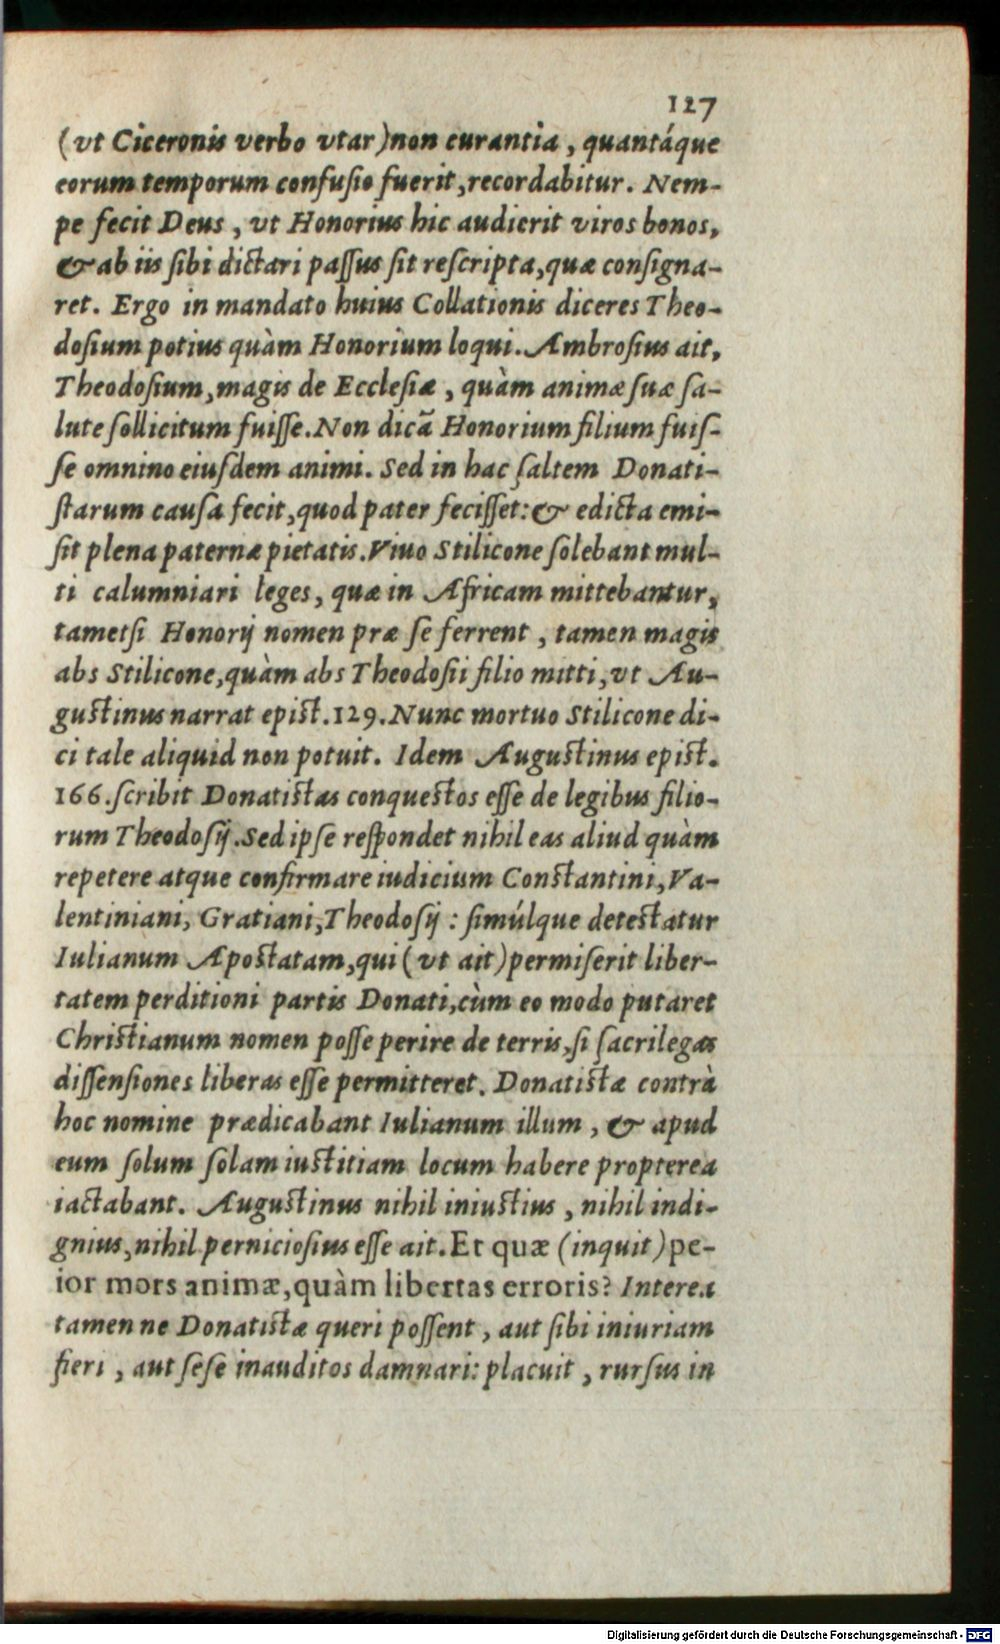 127
(vt Ciceronis verbo vtar) non curantia, quantáque
eorum temporum confusio fuerit, recordabitur. Nem-
pe fecit Deus, vt Honorius hic audierit viros bonos,
& ab iis sibi dictari passus sit rescripta, quæ consigna-
ret. Ergo in mandato huius Collationis diceres Theo-
dosium potius quàm Honorium loqui. Ambrosius ait,
Theodosium, magis de Ecclesiæ, quàm animæ suæ sa-
lute sollicitum fuisse. Non dicã Honorium filium fuis-
se omnino eiusdem animi. Sed in hac saltem Donati-
starum causa fecit, quod pater fecisset: & edicta emi-
sit plena paternæ pietatis. Viuo Stilicone solebant mul-
ti calumniari leges, quæ in Africam mittebantur,
tametsi Honorij nomen præ se ferrent, tamen magis
abs Stilicone, quàm abs Theodosii filio mitti, vt Au-
gustinus narrat epist. 129. Nunc mortuo Stilicone di-
ci tale aliquid non potuit. Idem Augustinus epist.
166. scribit Donatistas conquestos esse de legibus filio-
rum Theodosij. Sed ipse respondet nihil eas aliud quàm
repetere atque confirmare iudicium Constantini, Va-
lentiniani, Gratiani, Theodosij: simúlque detestatur
Iulianum Apostatam, qui (vt ait) permiserit liber-
tatem perditioni partis Donati, cùm eo modo putaret
Christianum nomen posse perire de terris, si sacrilegas
dissensiones liberas esse permitteret. Donatistæ contrà
hoc nomine prædicabant Iulianum illum, & apud
eum solum solam iustitiam locum habere propterea
iactabant. Augustinus nihil iniustius, nihil indi-
gnius, nihil perniciosius esse ait. Et quæ (inquit) pe-
ior mors animæ, quàm libertas erroris? Interea
tamen ne Donatistæ queri possent, aut sibi iniuriam
fieri, aut sese inauditos damnari: placuit, rursus in
Digitalisierung gefördert durch die Deutsche Forschungsgemeinschaft - DFG